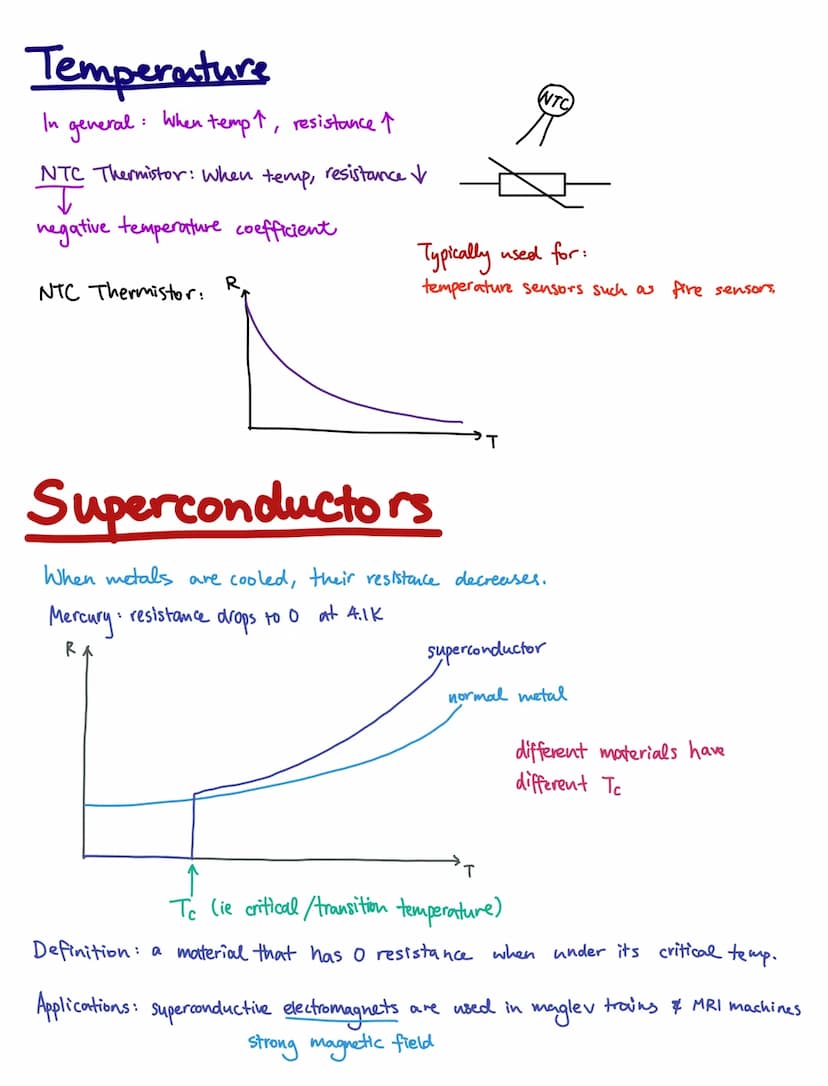 Temperature
In general: When temp↑, resistance↑
NTC
NTC Thermistor: When temp, resistance↓
negative temperature coefficient
Typically used for:
temperature sensors such as fire sensors.
NTC Thermistor:
R
T
Superconductors
When metals are cooled, their resistance decreases.
Mercury: resistance drops to 0 at 4.1K
R
superconductor
normal metal
different materials have
different Tc
T
Tc (ie critical/transition temperature)
Definition: a material that has 0 resistance when under its critical temp.
Applications: superconductive electromagnets are used in maglev trains & MRI machines
strong magnetic field